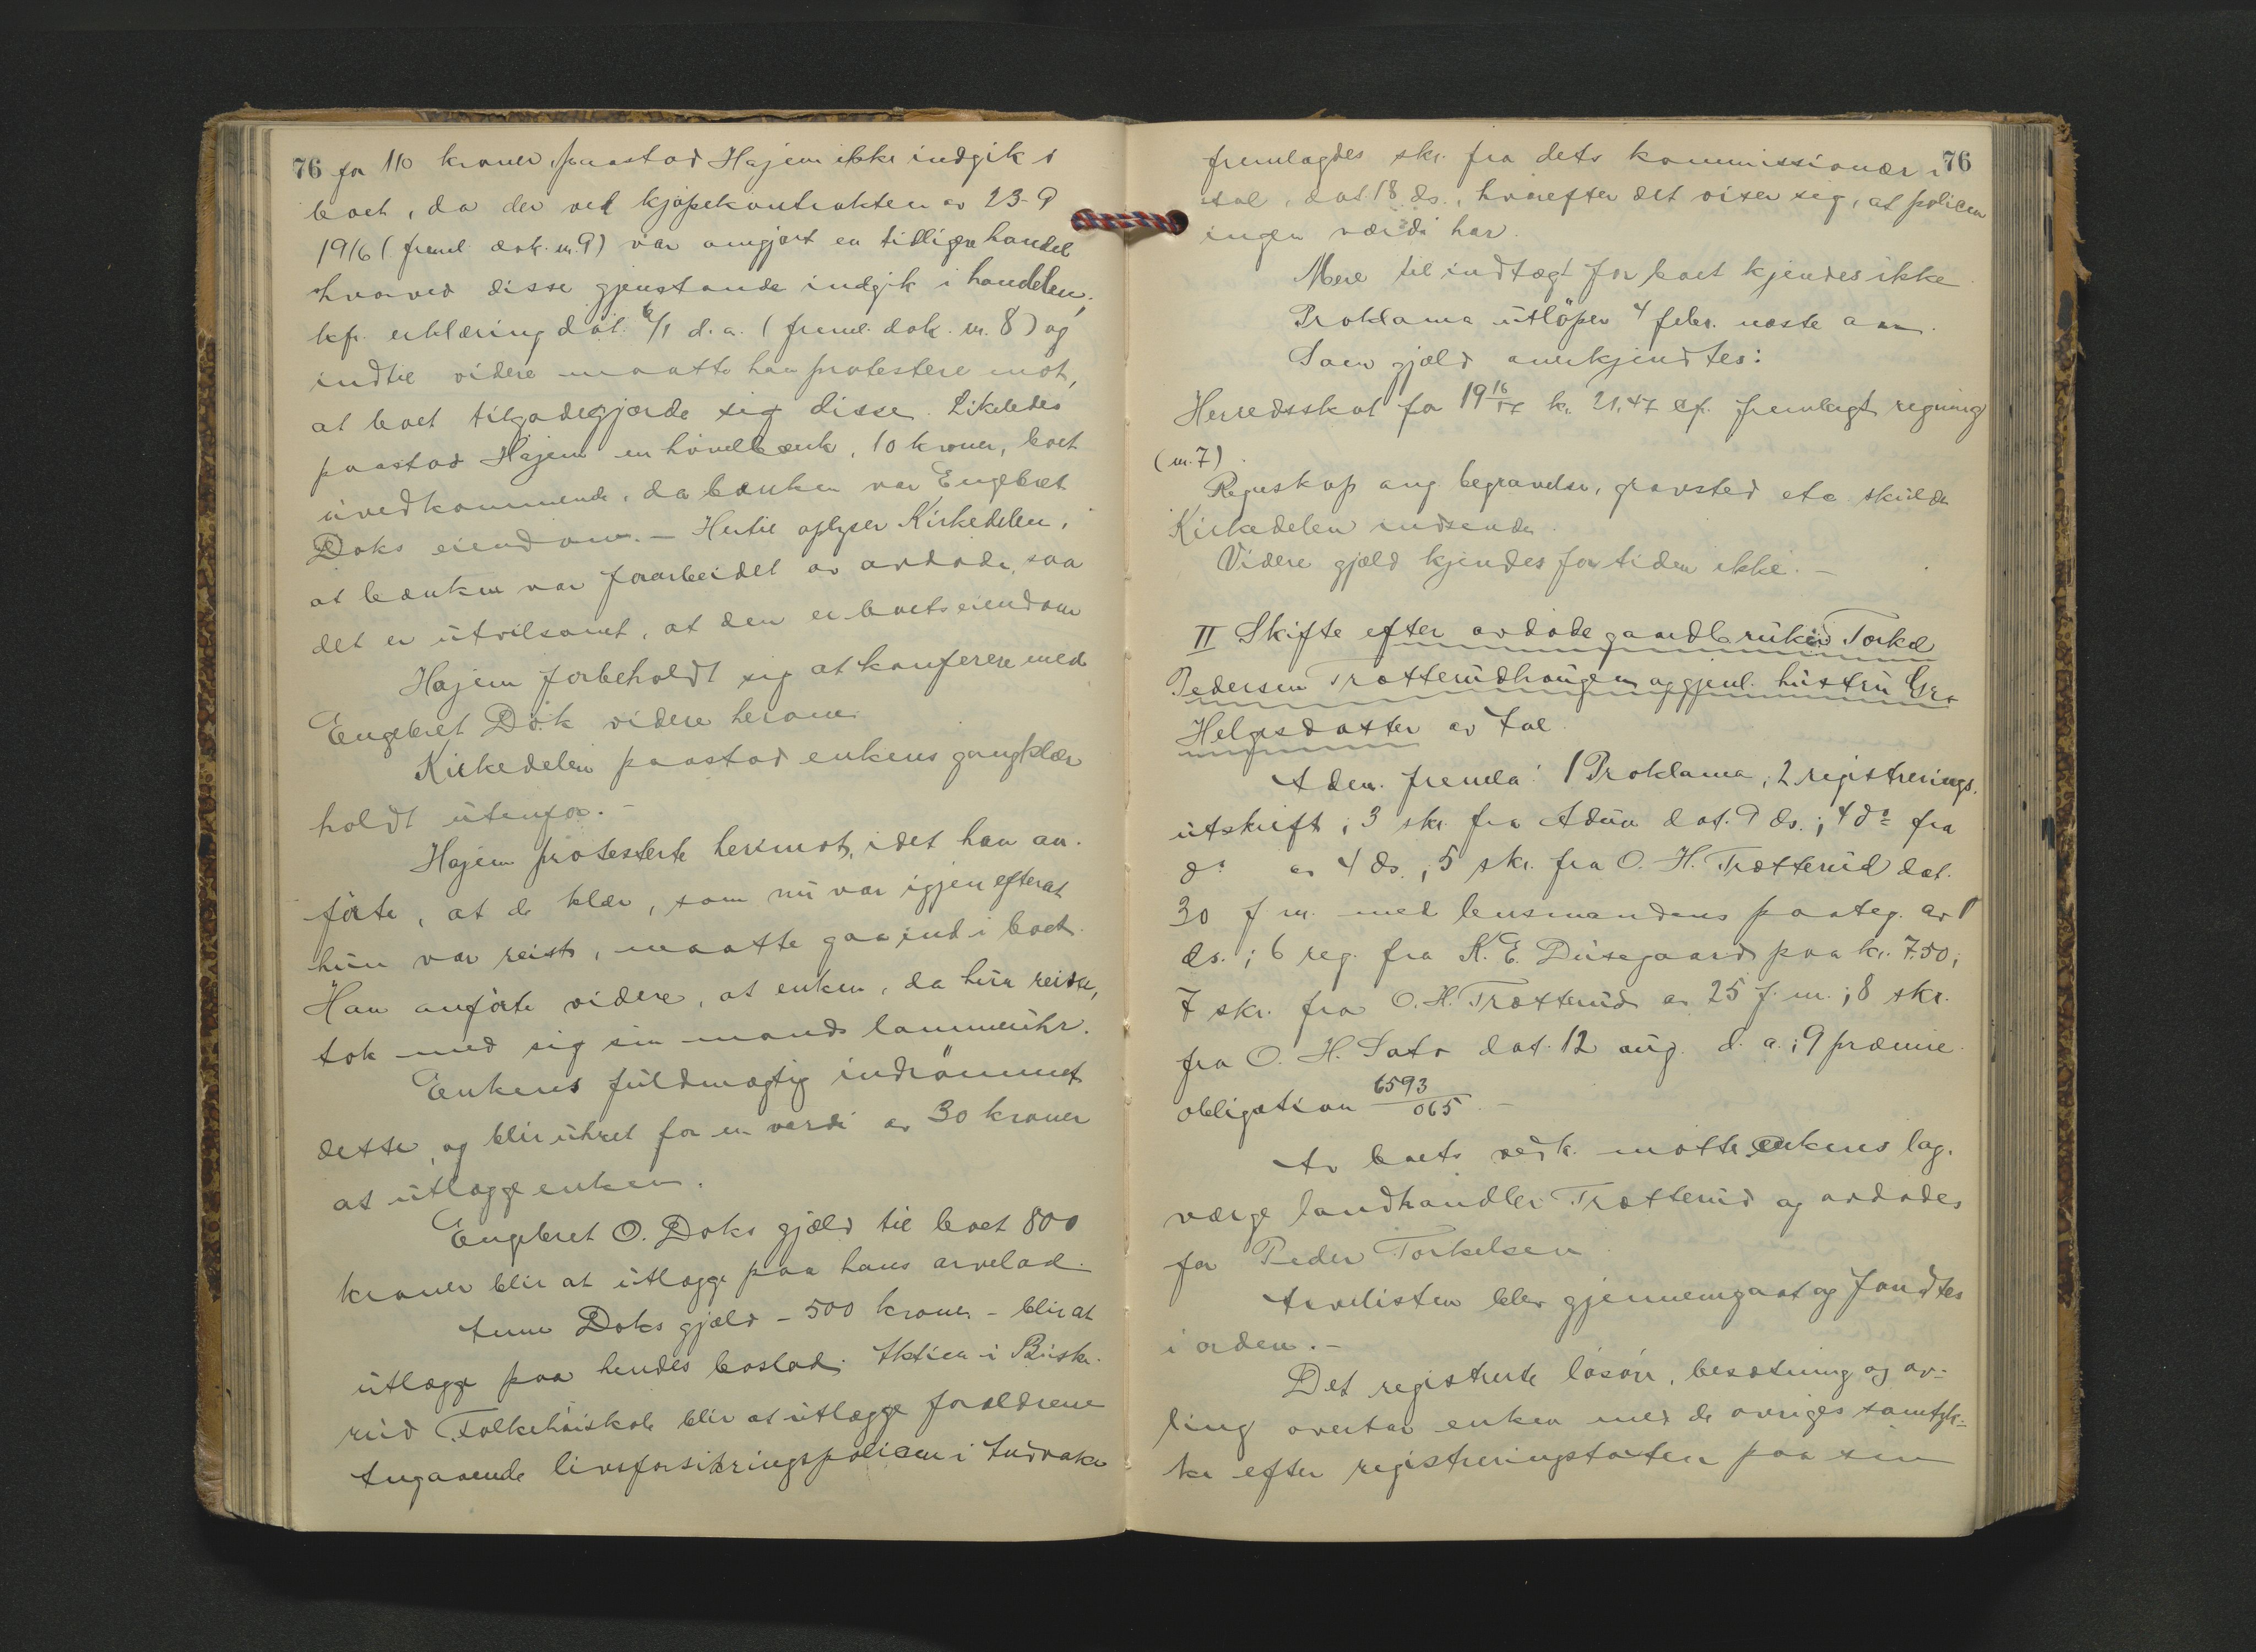 76 for 110 kroner, paastod Hajem ikke indgik i
boet, da der ved kjøpekontrakten av 23-9
1916 (freml. dok. nr. 9) var omgjort en tidligere handel
hvorved disse gjenstande indgik i handelen,
kfr. erklæring dat. 6/1 d.a. (freml. dok. nr. 8) og
indtil videre maatte han protestere mot,
at boet tilgodegjorde sig disse. Likeledes
paastod Hajem en høvelbænk, 10 kroner, boet
uvedkommende, da bænken var Engebret
Doks eiendom. – Hertil oplyser Kirkedelen,
at bænken var forarbeidet av avdøde, saa
det er utvilsomt, at den er boets eiendom
Hajem forbeholdt sig at konferere med
Engebret Dok videre herom.
Kirkedelen paastod enkens gangklær
holdt utenfor. –
Hajem protesterte herimot, idet han an-
førte, at de klær, som nu var igjen efterat
hun var reist, maatte gaa ind i boet.
Han anførte videre, at enken, da hun reiste,
tok med sig sin mands lommeuhr.
Enkens fuldmægtig indrømmet
dette, og blir uhret for en værdi av 30 kroner
at utlægge enken.
Engebret O. Doks gjæld til boet 800
kroner blir at utlægge paa hans arvelod.
Anne Doks gjæld – 500 kroner – blir at
utlægge paa hendes boslod. Aktien i Buske-
rud Folkehøiskole blir at utlægge forældrene
Angaaende livsforsikringspolicen i Andvake
fremlagdes skr. fra dets kommissionær i 76
Aal, dat 18 ds., hvorefter det viser sig, at policen
ingen værdi har.
Mere til indtægt for boet kjendes ikke
Proklama utløper 4 febr. næste aar.
Som gjæld anerkjendtes:
Herredsskat for 19 16/17 kr. 21,47 cfr. fremlagt regning
(nr. 7).
Regnskap ang begravelse, gravsted etc. skulde
Kirkedelen indsende.
Videre gjæld kjendes for tiden ikke. –
II Skifte efter avdøde gaardbruker Torkel
Pedersen Trøtterudhaugen og gjenl. hustru Gro
Helgesdatter av Aal
Adm. fremla: 1 Proklama, 2 registrerings-
utskrift; 3 skr. fra Adm dat. 9 ds.; 4 do fra
do av 4 ds., 5 skr. fra O. H. Trøtterud dat.
30 f. m. med lensmandens paateg. av 1
ds.; 6 reg. fra K. E. Dusegaard paa kr. 7.50;
7 skr. fra O. H. Trøtterud av 25 f. m.; 8 skr.
fra O. H. Sato dat. 12 aug. d. a.; 9 præmie-
obligation 6593/065. –
Av boets vedk. møtte enkens lag-
værge landhandler Trøtterud og avdødes
far Peder Torkelsen
Arvelisten blev gjennemgaat og fandtes
i orden. –
Det registrerte løsøre, besætning og av-
ling overtar enken med de øvriges samtyk-
ke efter registreringstaksten paa sin